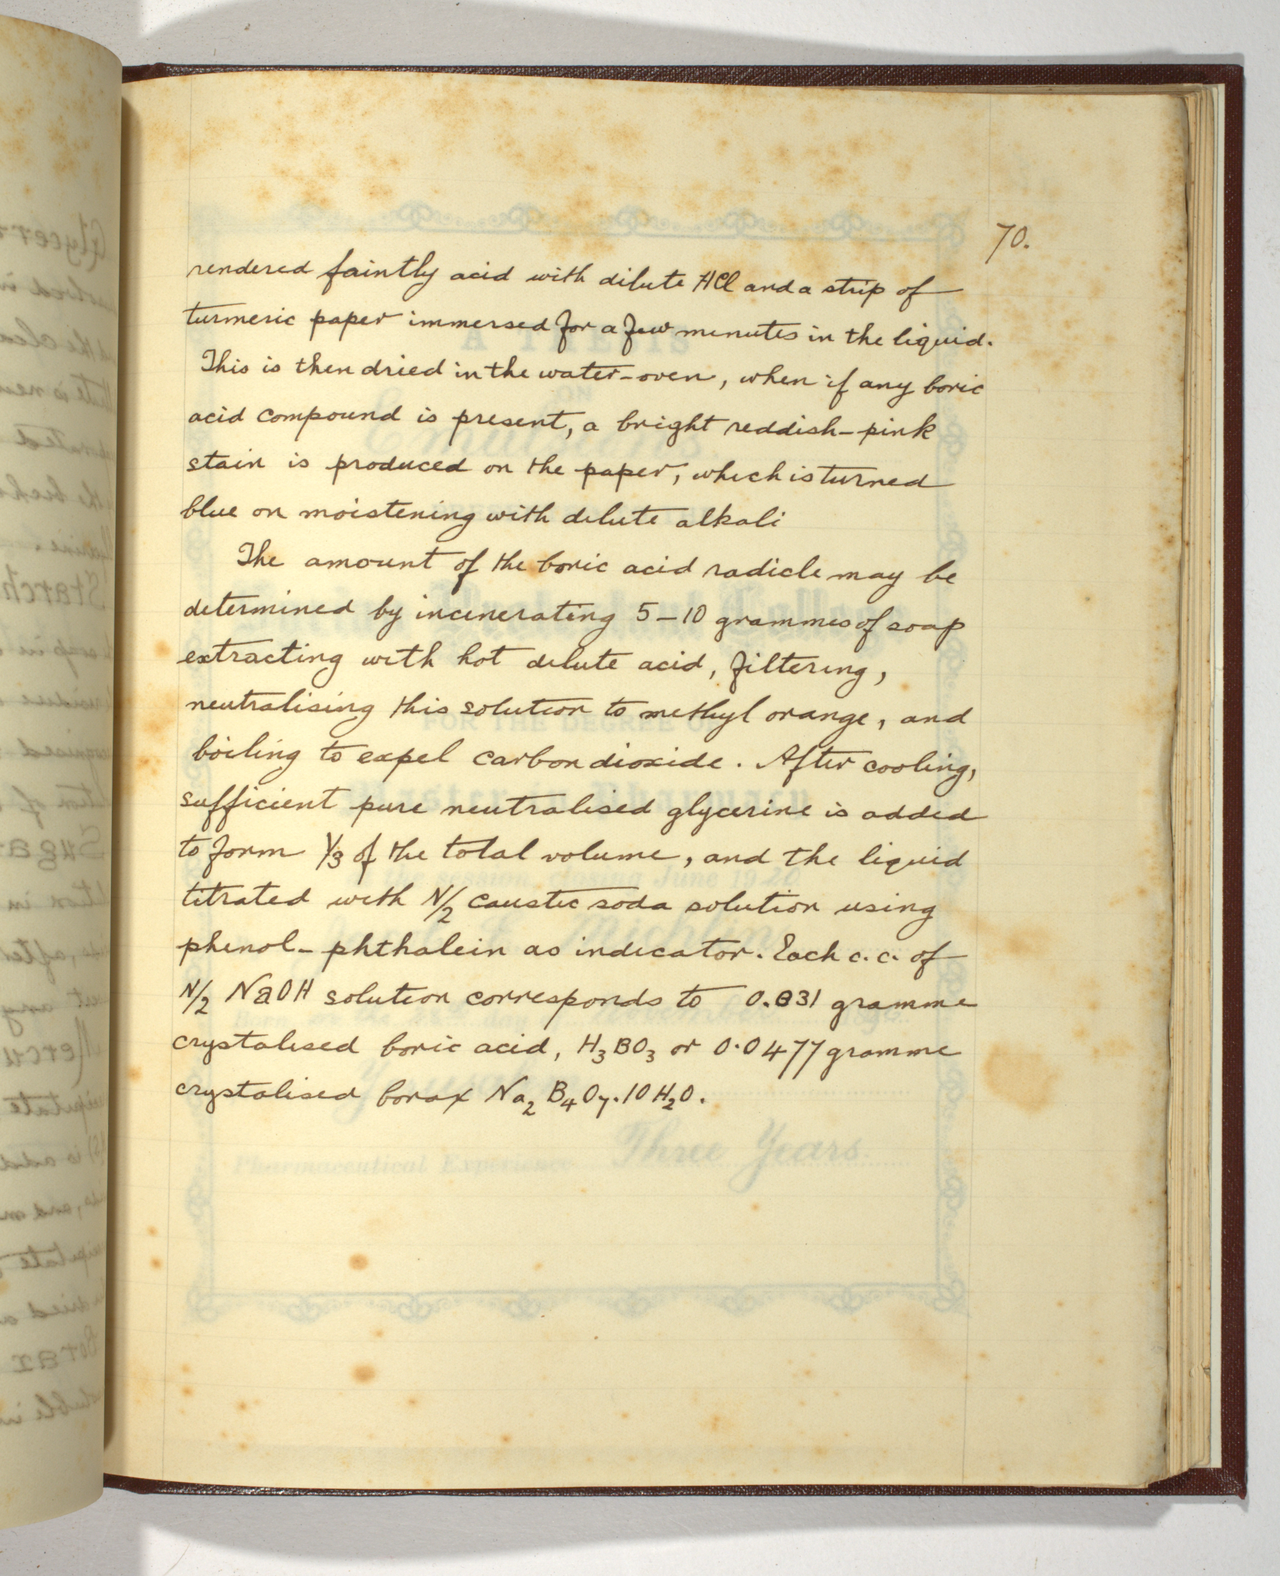 70.
rendered faintly acid with dilute HCl and a strip of
turmeric paper immersed for a few minutes in the liquid.
This is then dried in the water-oven, when if any boric
acid compound is present, a bright reddish-pink
stain is produced on the paper, which is turned
blue on moistening with dilute alkali
The amount of the boric acid radicle may be
determined by incenerating 5-10 grammes of soap
extracting with hot dilute acid, filtering,
neutralising this solution to methyl orange, and
boiling to expel carbon dioxide. After cooling,
sufficient pure neutralised glycerine is added
to form 1/3 of the total volume, and the liquid
titrated with N/2 caustic soda solution using
phenol-phthalein as indicator. Each c.c. of
N/2 NaOH solution corresponds to 0.031 gramme
crystalised boric acid, H3BO3 or 0.0477 gramme
crystalised borax Na2B4O7.10H2O.
A THESIS
ON
OF THE DEGREE OF
Master Pharmacy
the session, closing June 1920
Pharmaceutical Experience Three Years
Glycer
Starch
Suga
Mercu
Borax